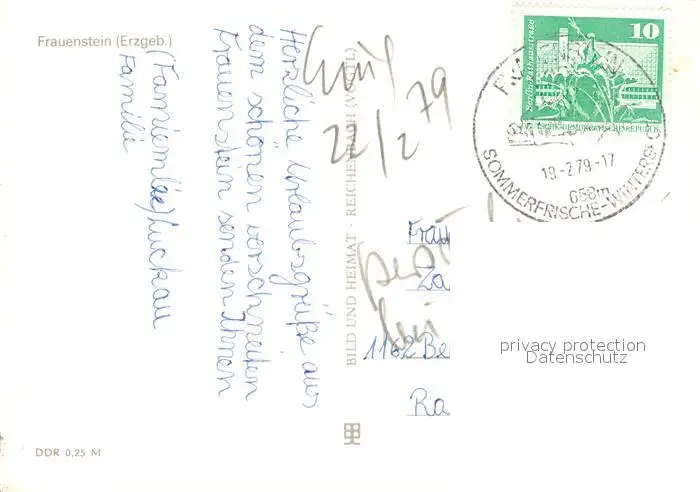 Frauenstein (Erzgeb.)
Herzliche Urlaubsgrüße aus
dem schönen verschneiten
Frauenstein senden Ihnen
Familie Luckau
22/2 79
BILD UND HEIMAT · REICHENBACH (VOGTL)
10
Berlin, Rathausstraße
DEUTSCHE DEMOKRATISCHE REPUBLIK
19.-2.79.-17
658m
SOMMERFRISCHE-WINTERS
Frau
Za
1162 Be
Ra
privacy protection
Datenschutz
DDR 0,25 M